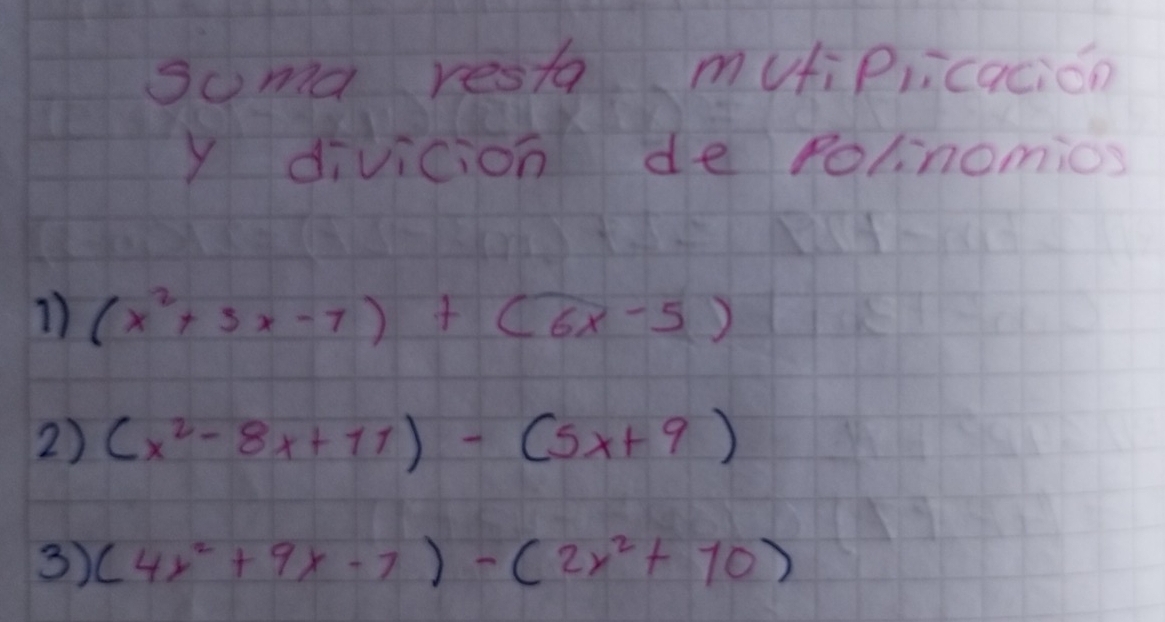 suma resta mutiplicación
y divición de Polinomios
1) (x² + 3x - 7) + (6x - 5)
2) (x² - 8x + 11) - (5x + 9)
3) (4x² + 9x - 7) - (2x² + 10)